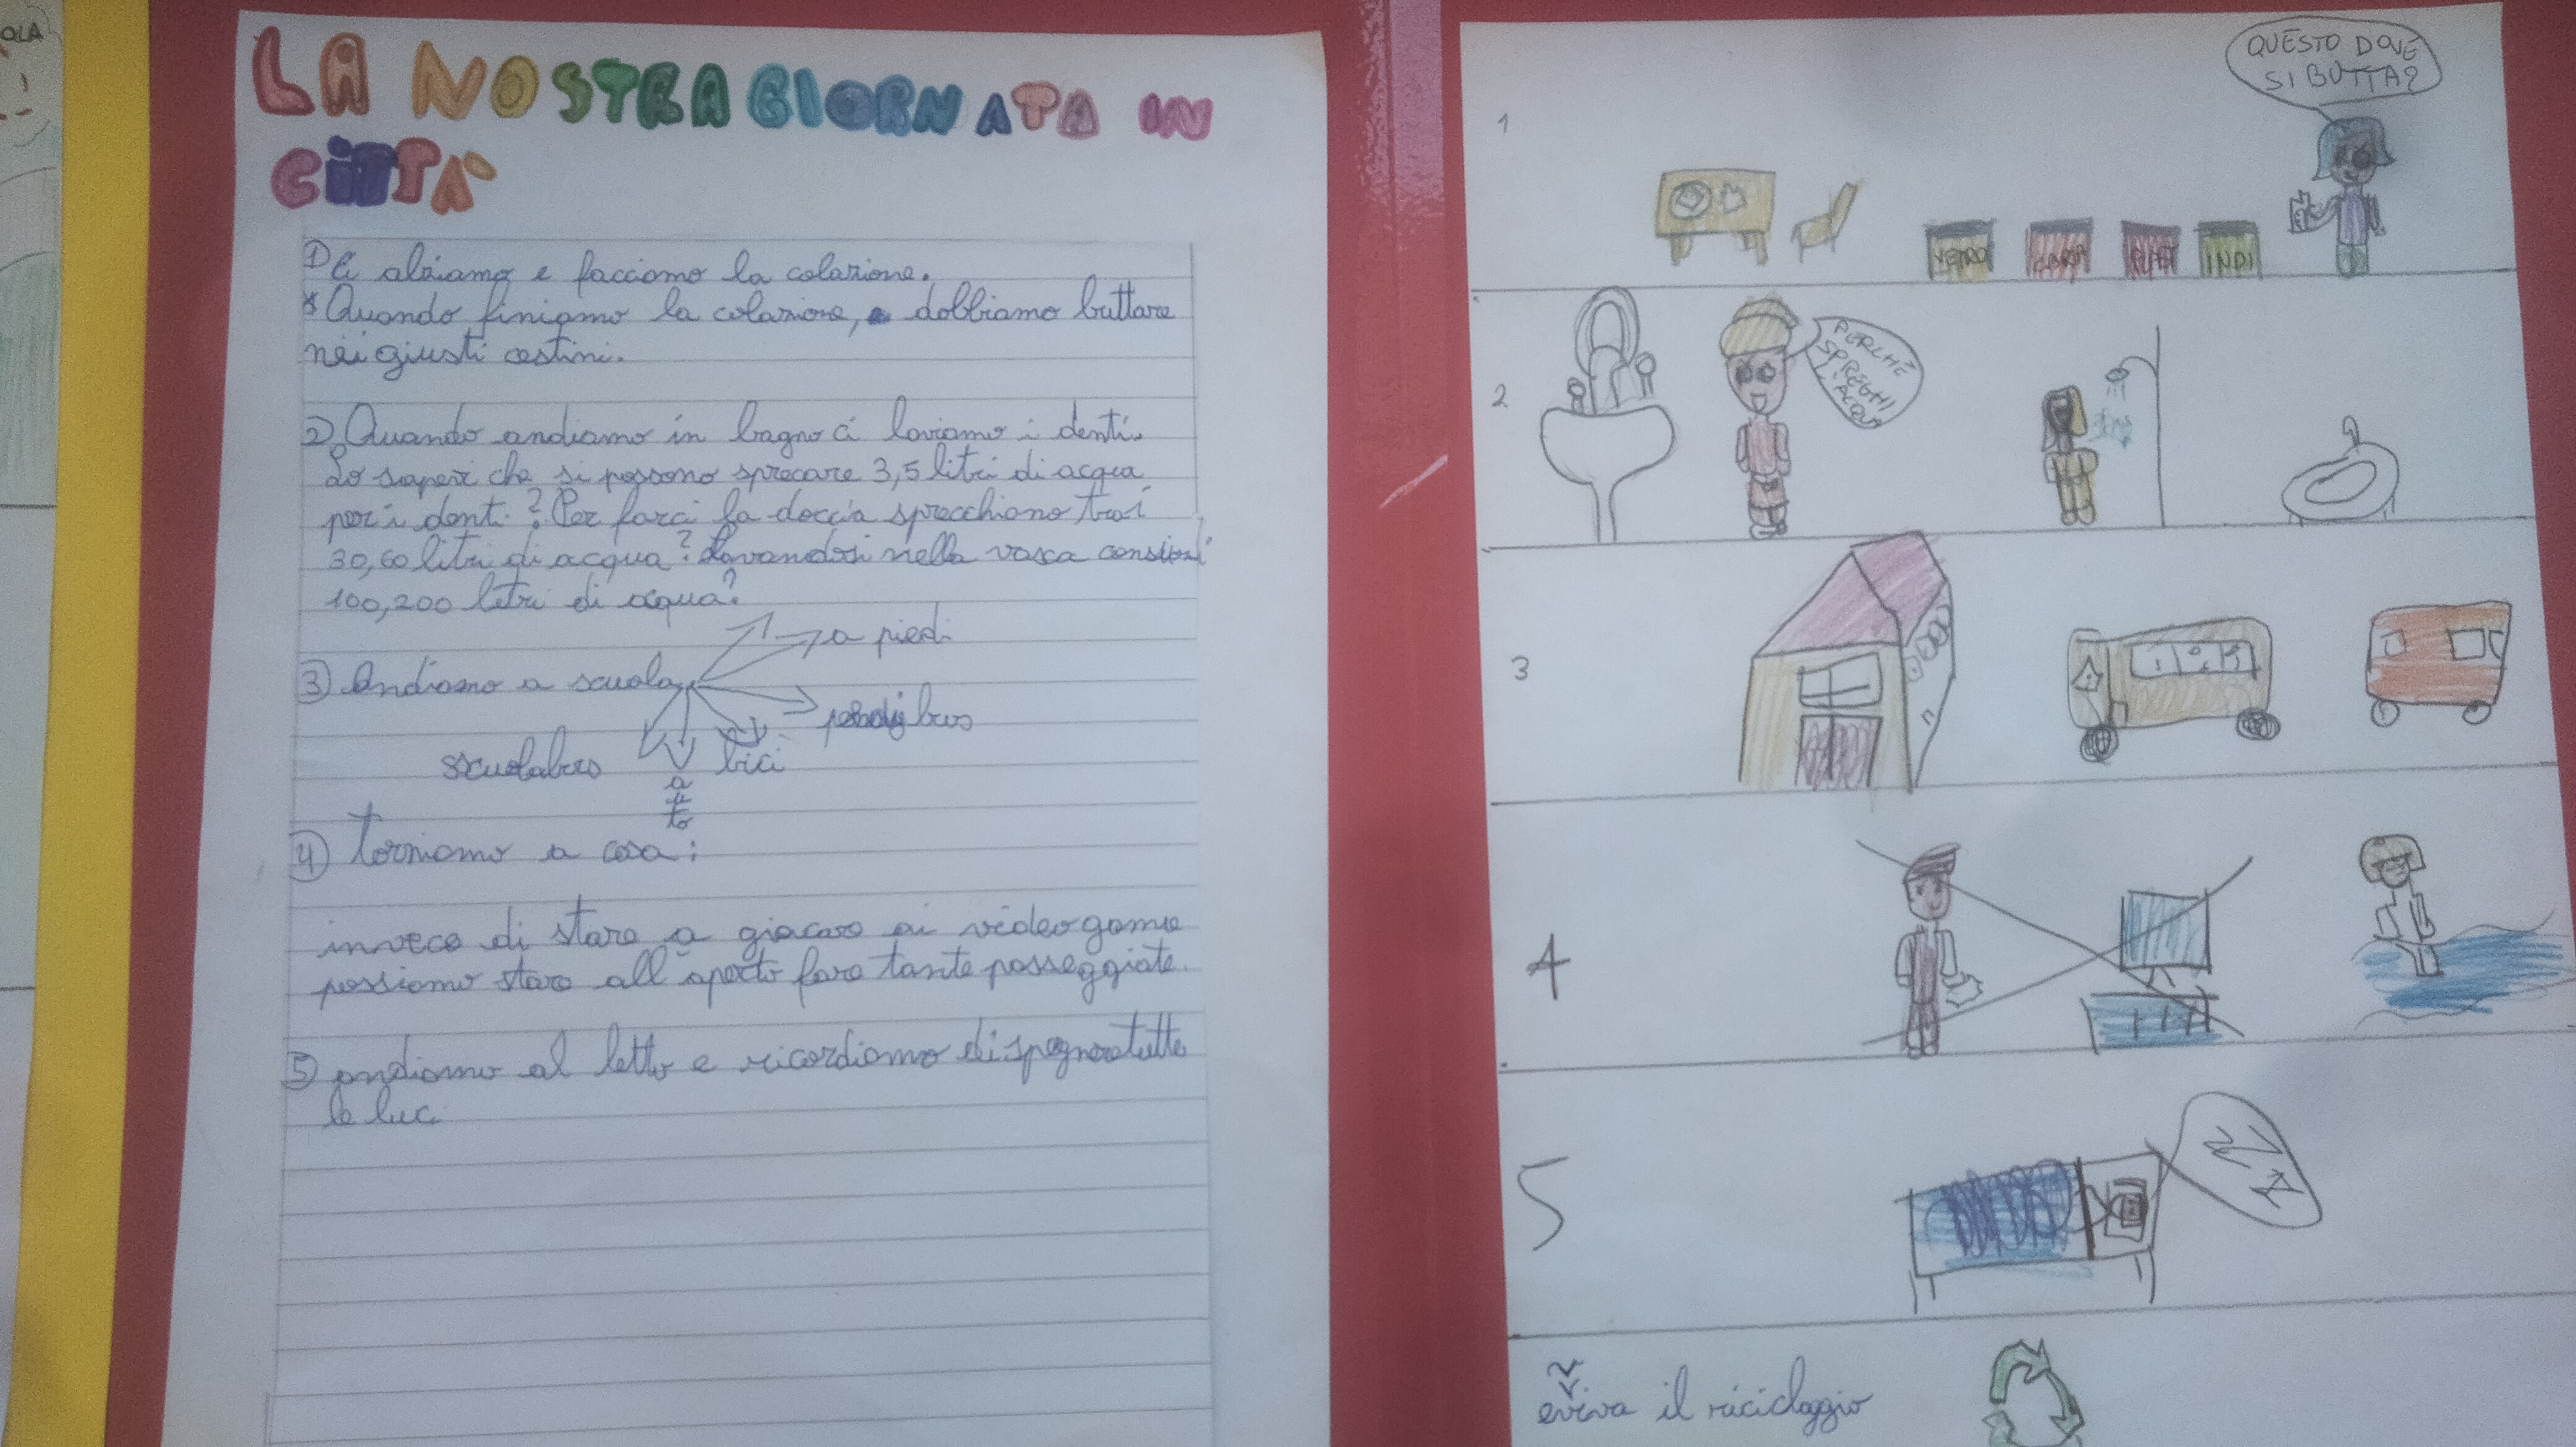 OLA
LA NOSTRA GIORNATA IN
CITTA'
1) Ci alziamo e facciamo la colazione.
* Quando finiamo la colazione, dobbiamo buttare
nei giusti cestini.
2) Quando andiamo in bagno ci laviamo i denti.
Lo sapevi che si possono sprecare 3,5 litri di acqua
per i denti? Per farci la doccia sprecchiano trai
30,60 litri di acqua? Lavandosi nella vasca
100,200 litri di acqua?
3) Andiamo a scuola
a piedi
bus
scuolabus
bici
auto
4) torniamo a casa:
invece di stare a giocare ai videogame
possiamo stare all'aperto fare tante passeggiate.
5) andiamo al letto e ricordiamo di spegnere tutte
le luci
QUESTO DOVE
SI BUTTA?
1
VETRO
CARTA
PLAST
INDI
2
PERCHÈ
SPRECHI
L'ACQUA
3
4
5
evviva il riciclaggio